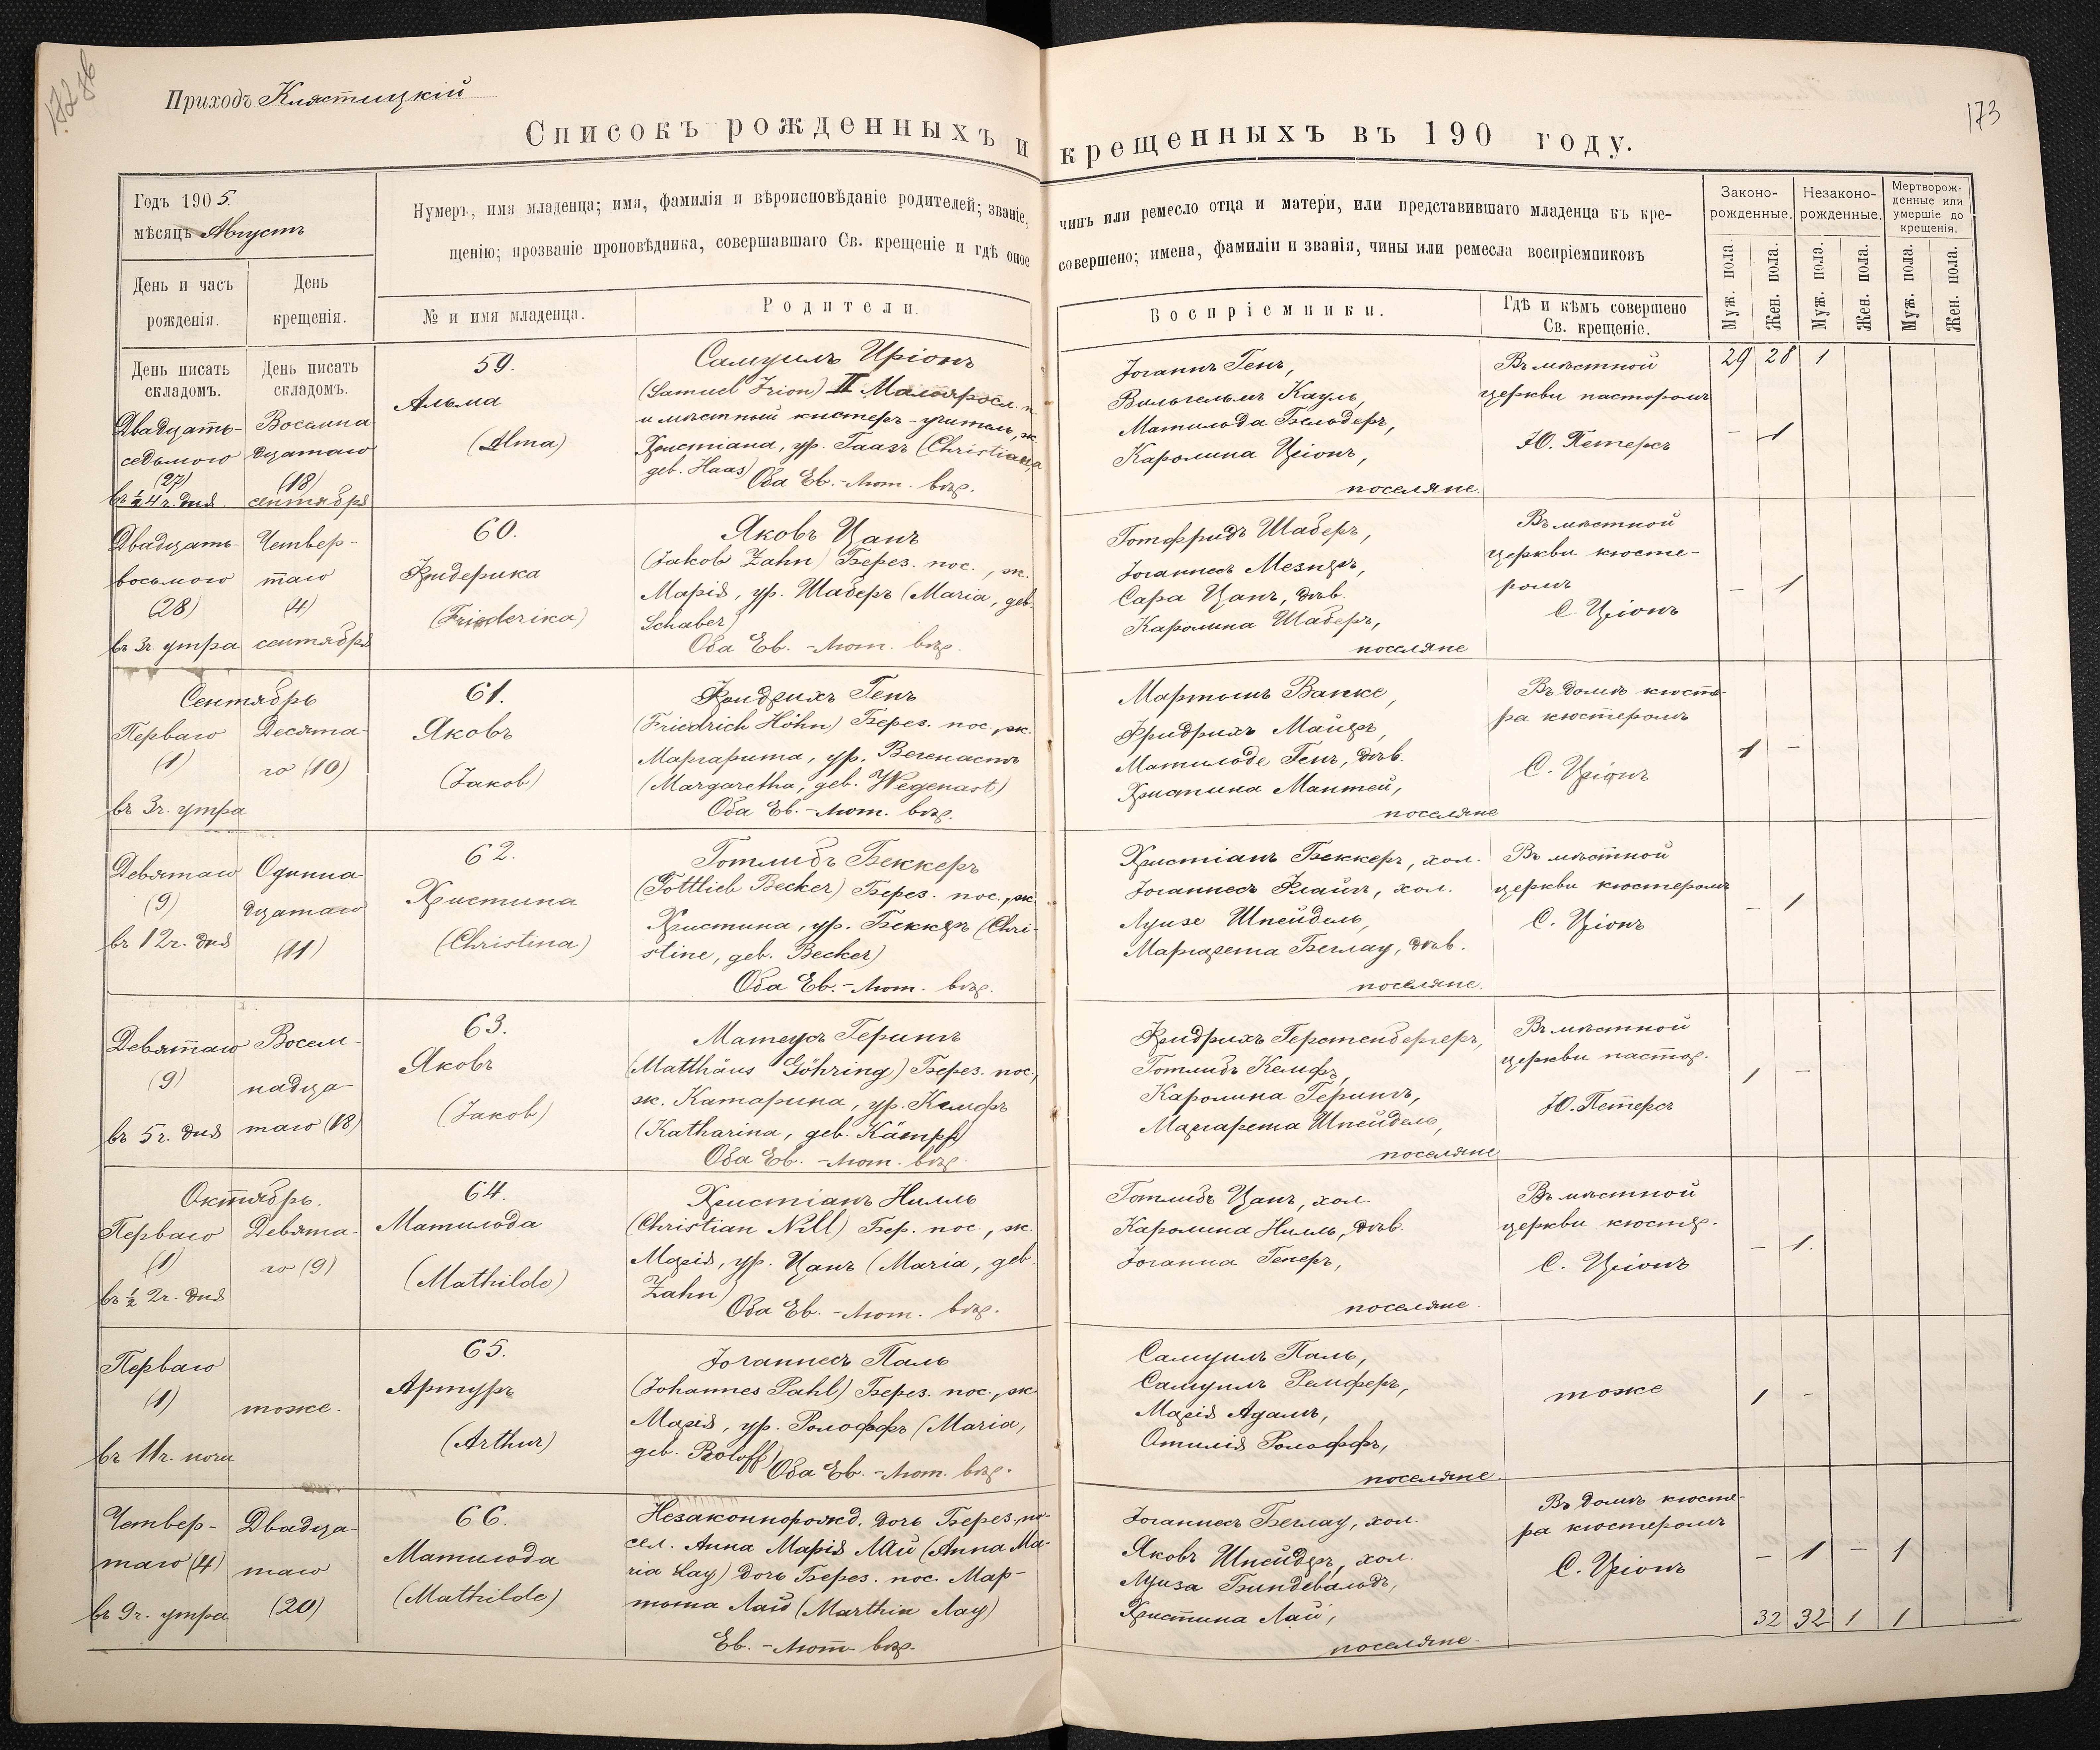 172 об
Приходъ Клястицкій
173
Списокъ рожденныхъ и крещенныхъ въ 190 году.
Годъ 1905.
мѣсяцъ Августъ
Нумеръ, имя младенца; имя, фамилія и вѣроисповѣданіе родителей; званіе, чинъ или ремесло отца и матери, или представившаго младенца къ кре-
щенію; прозваніе проповѣдника, совершавшаго Св. крещеніе и гдѣ оное совершено; имена, фамиліи и званія, чины или ремесла воспріемниковъ
Законо-
рожденные.
Незаконо-
рожденные.
Мертворож-
денные или
умершіе до
крещенія.
День и часъ
рожденія.
День
крещенія.
№ и имя младенца.
Родители.
Воспріемники.
Гдѣ и кѣмъ совершено
Св. крещеніе.
Муж. пола.
Жен. пола.
Муж. пола.
Жен. пола.
Муж. пола.
Жен. пола.
День писать
складомъ.
День писать
складомъ.
29 28 1
Двадцать-
седьмого
(27)
въ ½4 ч. дня.
Восемна-
дцатаго
(18)
сентября
59.
Альма
(Alma)
Самуилъ Иріонъ
(Samuel Irion) II Малояросл. п.
и мѣстный кистеръ-учитель, ж.
Христіана, ур. Гаазъ (Christiana
geb. Haas)
Оба Ев.-Лют. вѣр.
Іоганнъ Генъ,
Вильгельмъ Кауль,
Матильда Бельдеръ,
Каролина Иріонъ,
поселяне.
Въ мѣстной
церкви пасторомъ
Ю. Петерсъ
- 1
Двадцать-
восьмого
(28)
въ 3ч. утра
Четвер-
таго
(4)
сентября
60.
Фридерика
(Friederica)
Яковъ Цанъ
(Jakob Zahn) Берез. пос., ж.
Марія, ур. Шаберъ (Maria, geb.
Schaber)
Оба Ев.-Лют. вѣр.
Готфридъ Шаберъ,
Іоганнесъ Мезнеръ,
Сара Цанъ, дѣв.
Каролина Шаберъ,
поселяне
Въ мѣстной
церкви кюсте-
ромъ
С. Иріонъ
- 1
Сентябрь
Перваго
(1)
въ 3ч. утра
Десята-
го (10)
61.
Яковъ
(Jакоb)
Фридрихъ Генъ
(Friedrich Höhn) Берез. пос., ж.
Маргарита, ур. Вегенастъ
(Margaretha, geb. Wegenast)
Оба Ев.-Лют. вѣр.
Мартынъ Ванке,
Фридрихъ Майеръ,
Матильде Генъ, дѣв.
Христина Мантей,
поселяне
Въ домѣ кюсте-
ра кюстеромъ
С. Иріонъ
1 -
Девятаго
(9)
въ 12ч. дня
Одинна-
дцатаго
(11)
62.
Христина
(Christina)
Готлибъ Беккеръ
(Gottlieb Becker) Берез. пос., ж.
Христина, ур. Беккеръ (Chri-
stine, geb. Becker)
Оба Ев.-Лют. вѣр.
Христіанъ Беккеръ, хол.
Іоганнесъ Флайгъ, хол.
Луизе Шнейдель,
Маргарета Беглау, дѣв.
поселяне.
Въ мѣстной
церкви кюстеромъ
С. Иріонъ
- 1
Девятаго
(9)
въ 5ч. дня
Восем-
надца-
таго (18)
63.
Яковъ
(Jакоb)
Матеусъ Герингъ
(Matthäus Göhring) Берез. пос.,
ж. Катарина, ур. Кемфъ
(Katharina, geb. Kämpf)
Оба Ев.-Лют. вѣр.
Фридрихъ Герстенбергеръ,
Готлибъ Кемфъ,
Каролина Герингъ,
Маргарета Шнейдель,
поселяне
Въ мѣстной
церкви пастор.
Ю. Петерсъ
1 -
Октябрь.
Перваго
(1)
въ ½ 2ч. дня
Девята-
го (9)
64.
Матильда
(Mathilde)
Христіанъ Нилль
(Christian Nill) Бер. пос., ж.
Марія, ур. Цанъ (Maria, geb.
Zahn)
Оба Ев.-Лют. вѣр.
Готлибъ Цанъ, хол.
Каролина Нилль, дѣв.
Іоганна Генеръ,
поселяне.
Въ мѣстной
церкви кюстер.
С. Иріонъ
- 1.
Перваго
(1)
въ 11ч. ночи
тоже.
65.
Артуръ
(Arthur)
Іоганнесъ Паль
(Johannes Pahl) Берез. пос., ж.
Марія, ур. Ролоффъ (Maria,
geb. Roloff)
Оба Ев.-Лют. вѣр.
Самуилъ Паль,
Самуилъ Ремферъ,
Марія Адамъ,
Отилія Ролоффъ,
поселяне.
тоже
1 -
Четвер-
таго (4)
въ 9ч. утра
Двадца-
таго
(20)
66.
Матильда
(Mathilde)
Незаконнорожд. дочь Берез. по-
сел. Анна Марія Лай (Anna Ma-
ria Lay) дочь Берез. пос. Мар-
тына Лай (Marthin Лау)
Ев.-Лют. вѣр.
Іоганнесъ Беглау, хол.
Яковъ Шнейдеръ, хол.
Луиза Биндевальдъ,
Христина Лай,
поселяне.
Въ домѣ кюсте-
ра кюстеромъ
С. Иріонъ
- 1 - 1
32 32 1 1